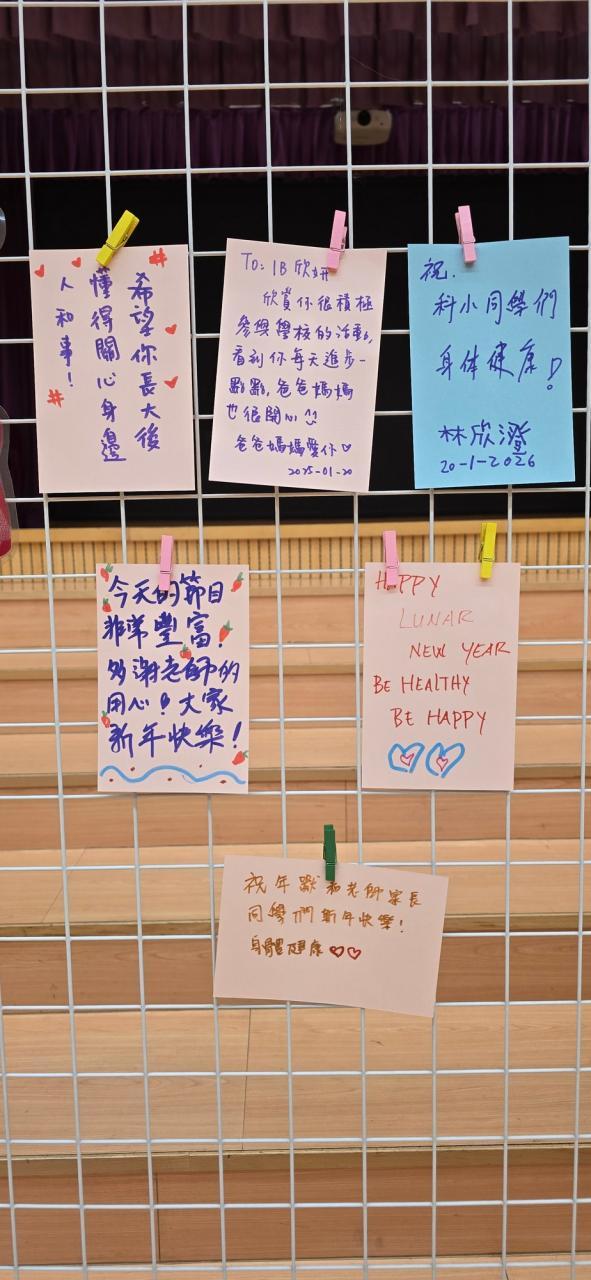 希望你長大後
懂得關心身邊
人和事！
To: 1B 欣妍
欣賞你很積極
參與學校的活動,
看到你每天進步一
點點,爸爸媽媽
也很開心
爸爸媽媽愛你
2025-01-20
祝.
科小同學們
身体健康!
林欣澄
20-1-2026
今天的節目
非常豐富!
多謝老師的
用心！大家
新年快樂!
HAPPY
LUNAR
NEW YEAR
BE HEALTHY
BE HAPPY
祝 年獸和老師家長
同學們新年快樂!
身體健康